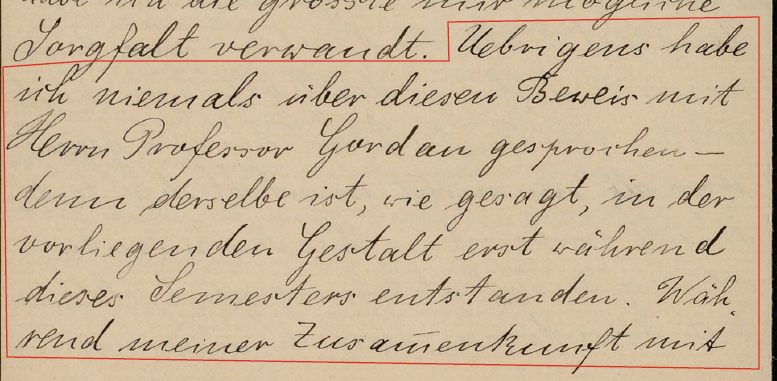 habe ich die grösste mir mögliche
Sorgfalt verwandt. Uebrigens habe
ich niemals über diesen Beweis mit
Herrn Professor Gordan gesprochen –
denn derselbe ist, wie gesagt, in der
vorliegenden Gestalt erst während
dieses Semesters entstanden. Wäh-
rend meiner Zusam̅enkunft mit